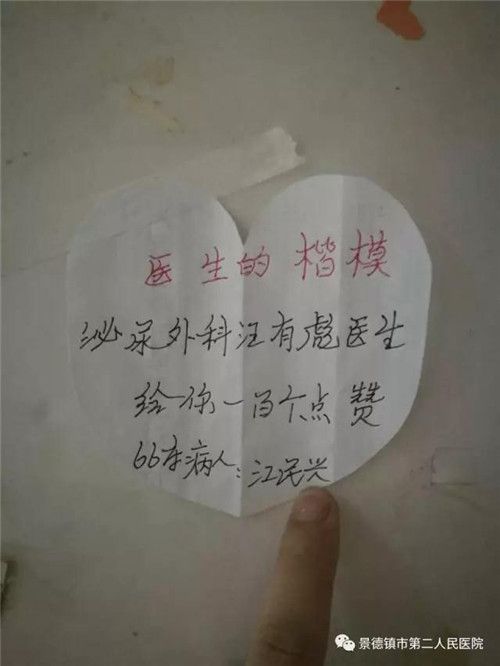 医生的楷模
泌尿外科汪有彪医生
给你一百个点赞
66床病人:江民兴
景德镇市第二人民医院